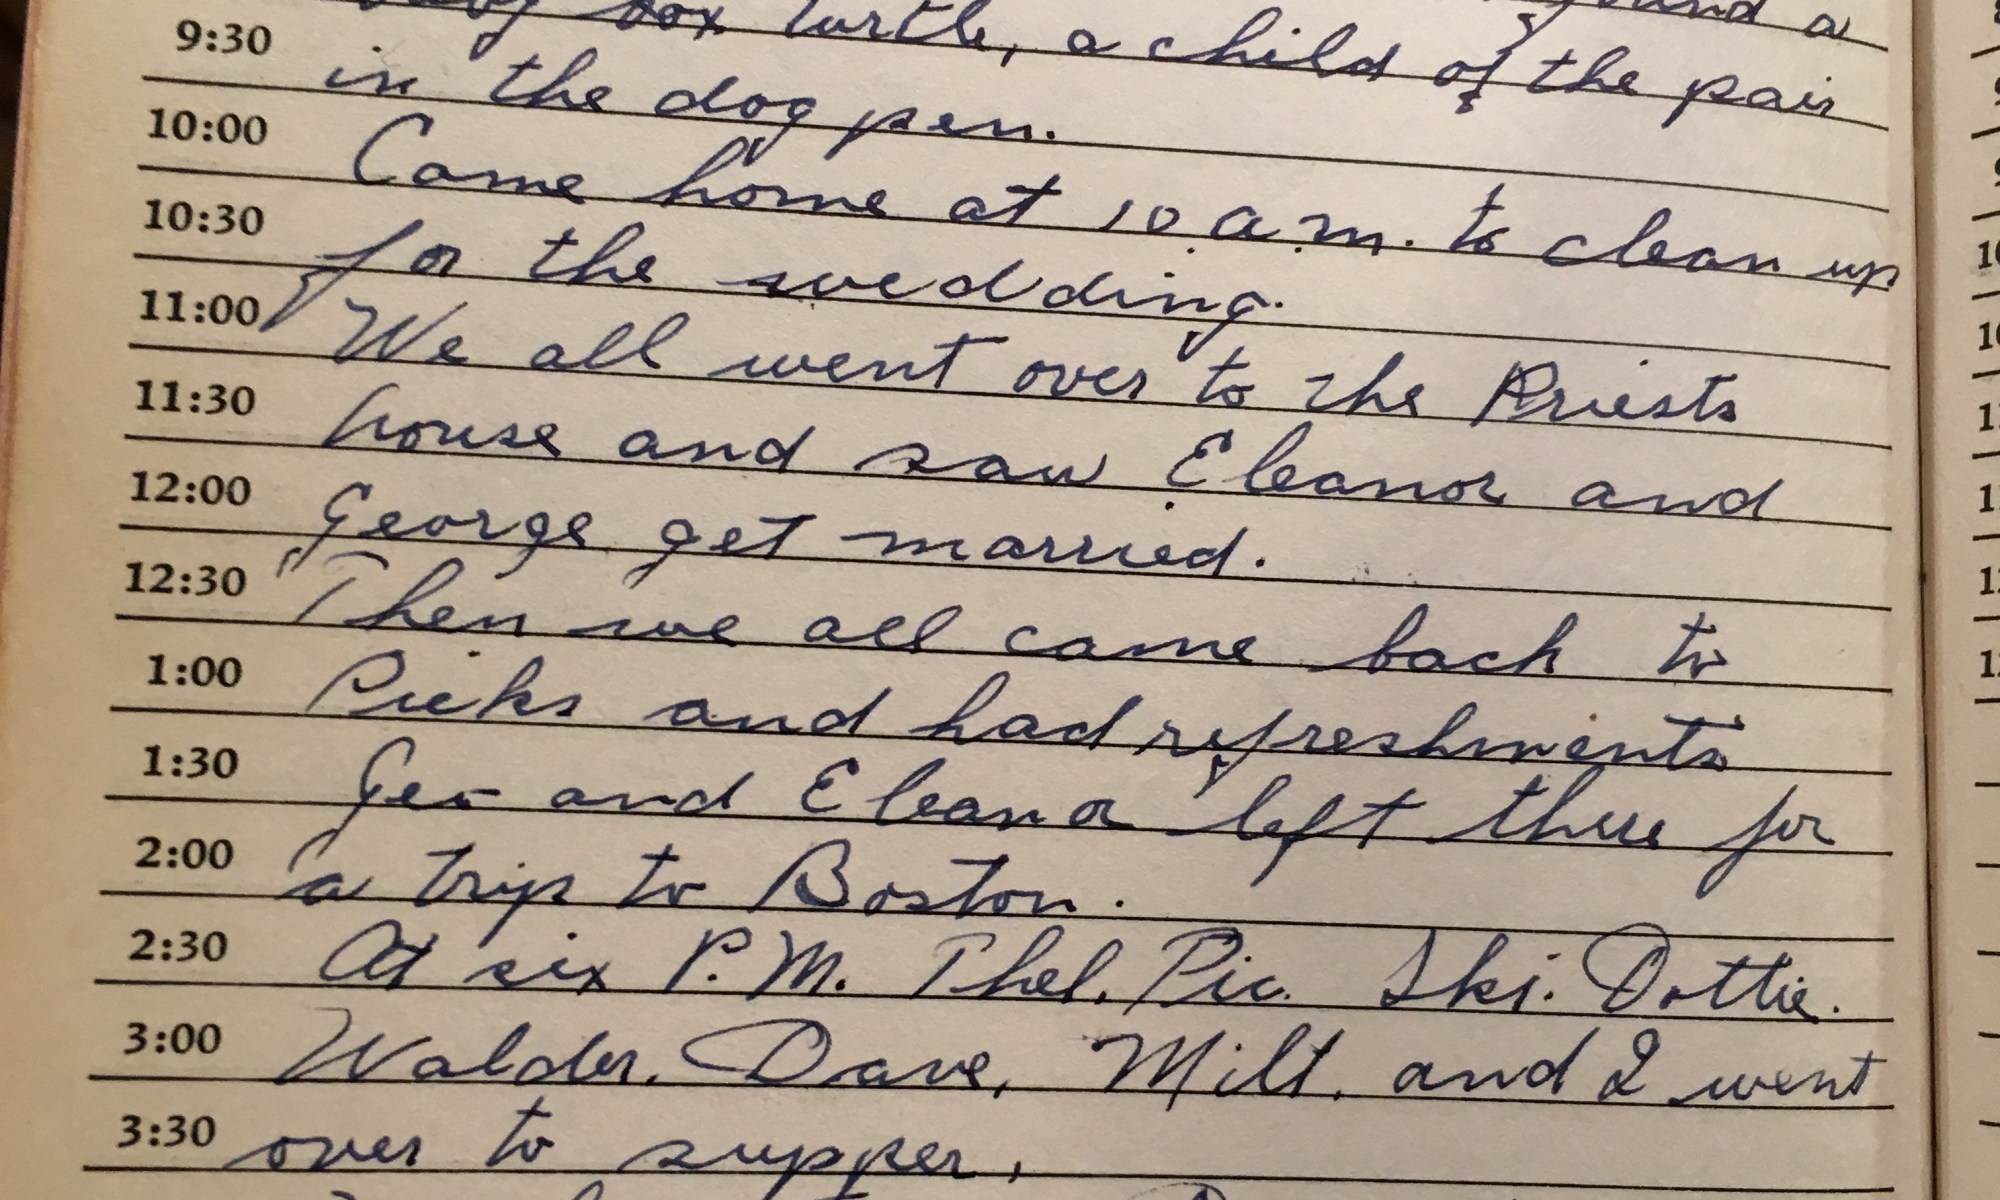 found a
9:30 baby box turtle, a child of the pair
10:00 in the dog pen.
10:30 Came home at 10 a.m. to clean up
11:00 for the wedding.
11:30 We all went over to the Priests
12:00 house and saw Eleanor and
12:30 George get married.
1:00 Then we all came back to
1:30 Picks and had refreshments
2:00 Geo and Eleanor left there for
2:30 a trip to Boston.
3:00 At six P.M. Thel. Pic. Ski. Dottie.
3:30 Walder. Dave, Milt. and I went
over to supper.